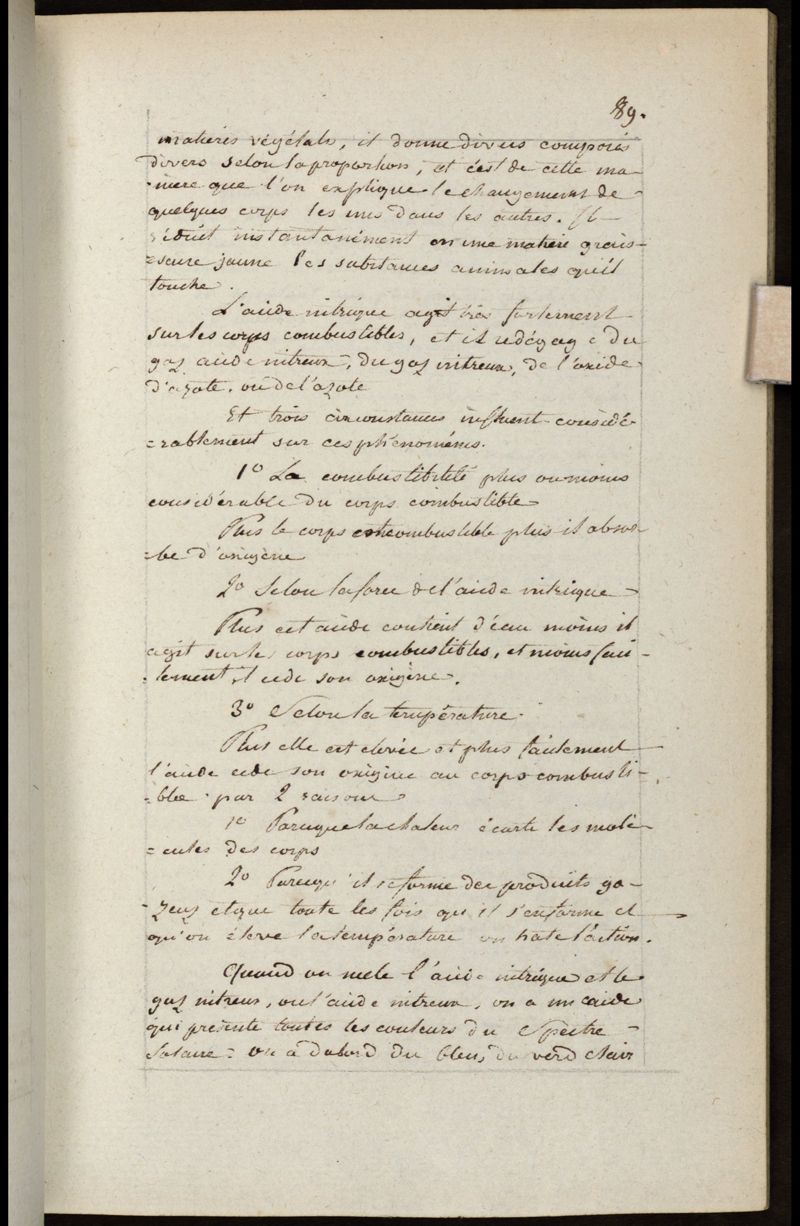 89.
matieres végétals, il donne divers composés
divers selon la proportion, et c'est de cette ma-
-niere que l'on explique le changement de
quelques corps les uns dans les autres. Il
réduit instantanément en une matiere grais-
=seuse jaune les substances animales qu'il
touche.
L'acide nitrique agit très fortement
sur les corps combustibles, et il se dégage du
gaz acide nitreux, du gaz nitreux, de l'oxide
d'azote, ou de l'azote
Et trois circonstances influent considé-
=rablement sur ces phénomenes.
1° La combustibilité plus ou moins
considérable du corps combustible
Plus le corps est combustible plus il absor-
=be d'oxigène
2° Selon la force de l'acide nitrique
Plus cet acide contient d'eau moins il
agit sur les corps combustibles, et moins faci-
-lement il cede son oxigène.
3° Selon la température.
Plus elle est elevée et plus facilement
l'acide cede son oxigine au corps combusti-
=ble par 2 raisons
1° Parceque la chaleur écarte les molé-
=cules des corps
2° Parcequ'il se forme des produits ga-
-zeux et que toute les fois qu'il s'en forme et
qu'on éleve la température on hate l'action.
Quand on mele l'acide nitrique et le
gaz nitreux, ou l'acide nitreux, on a un acide
qui présente toutes les couleurs du Spectre
Solaire = on a dabord du bleu, du verd clair